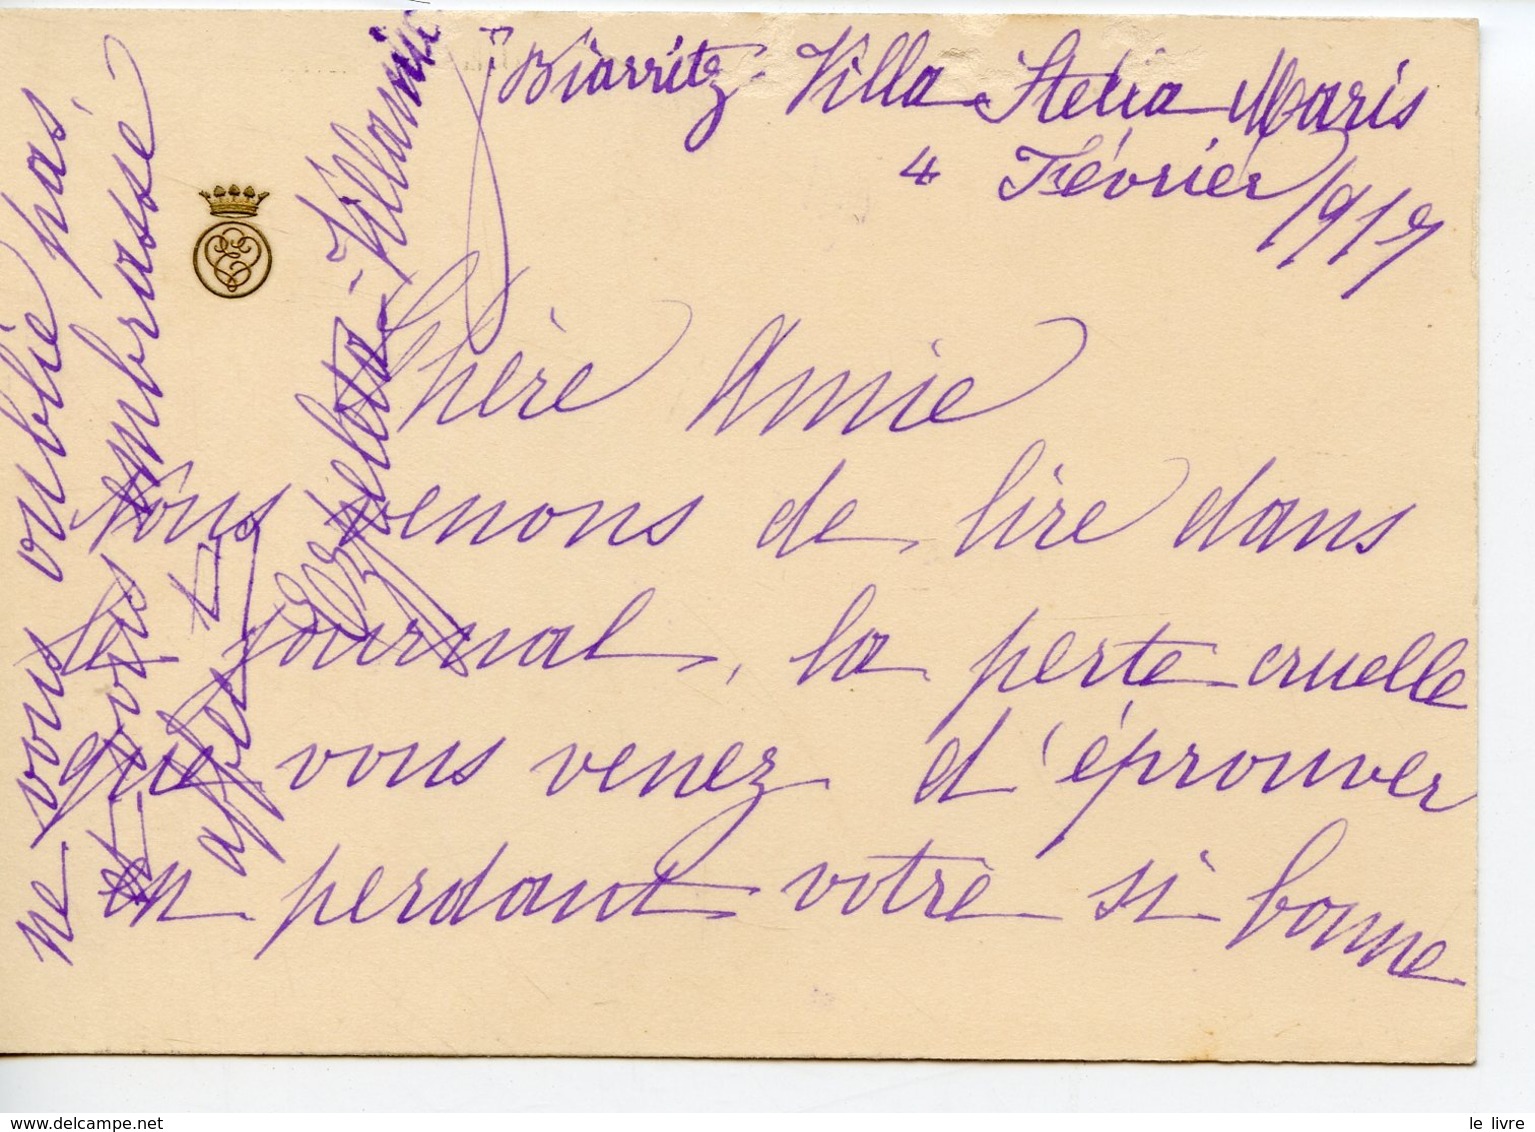 Biarritz. Villa Stella Maris
4 Février 1917
Chère Amie
Nous venons de lire dans
le journal, la perte cruelle
que vous venez d'éprouver
en perdant votre si bonne
ne vous oublie pas
et vous embrasse
affect
Villamir
www.delcampe.net
le livre